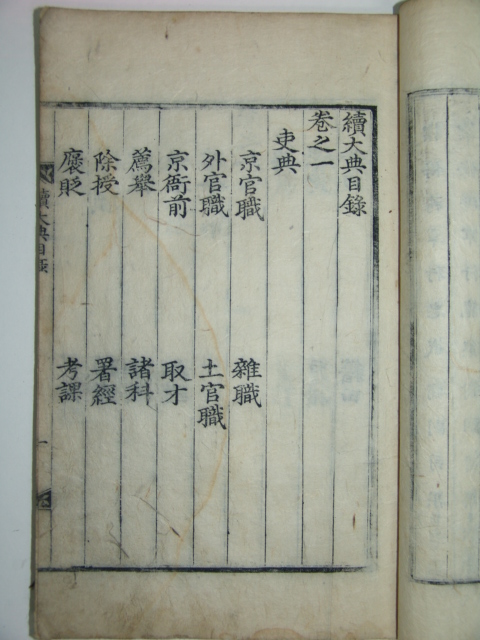 續大典目錄
卷之一
吏典
京官職 雜職
外官職 土官職
京衙前 取才
薦擧 諸科
除授 署經
褒貶 考課
續大典目錄 一